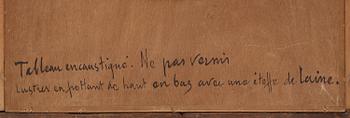 Tableau encaustiqué. Ne pas vernir
Lustrer en frottant de haut en bas avec une étoffe de laine.